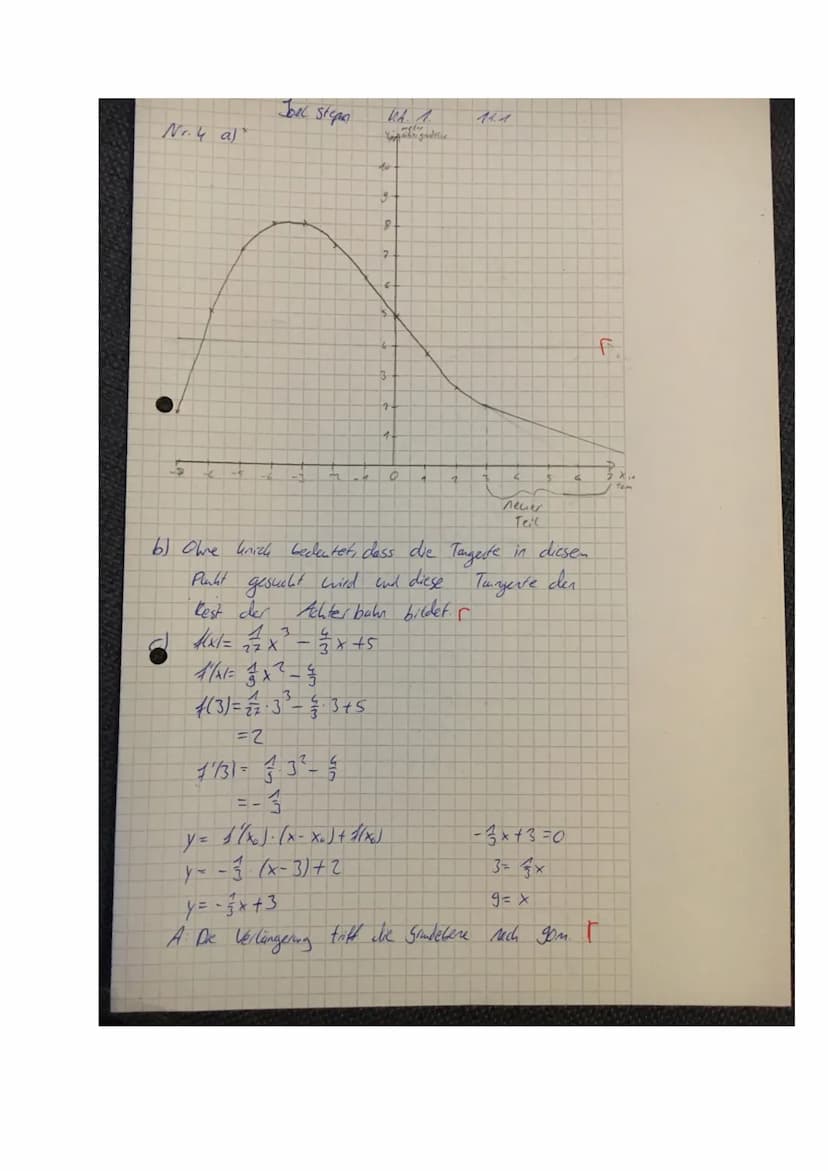 Joel Stepan KA. 1. 11.1
Nr. 4 a)
10
9
8
7
6
5
4
3
2
1
-7 -6 -5 -4 -3 -2 -1 0 1 2 3 4 5 6 7 x in
neuer
Teil
b) Ohne Knick bedeutet, dass die Tangente in diesem
Punkt gesucht wird und diese Tangente den
Rest der Achterbahn bildet. r
c) f(x)= 1/27 x³ - 4/3 x +5
f'(x)= 1/9 x² - 4/3
f(3)= 1/27 · 3³ - 4/3 · 3+5
=2
f'(3)= 1/9 · 3² - 4/3
= - 1/3
y= f'(x₀)·(x-x₀)+f(x₀) -1/3 x+3=0
y= - 1/3 (x-3)+2 3= 1/3 x
y= - 1/3 x+3 9= x
A: Die Verlängerung triff die Grundebene nach 90m r